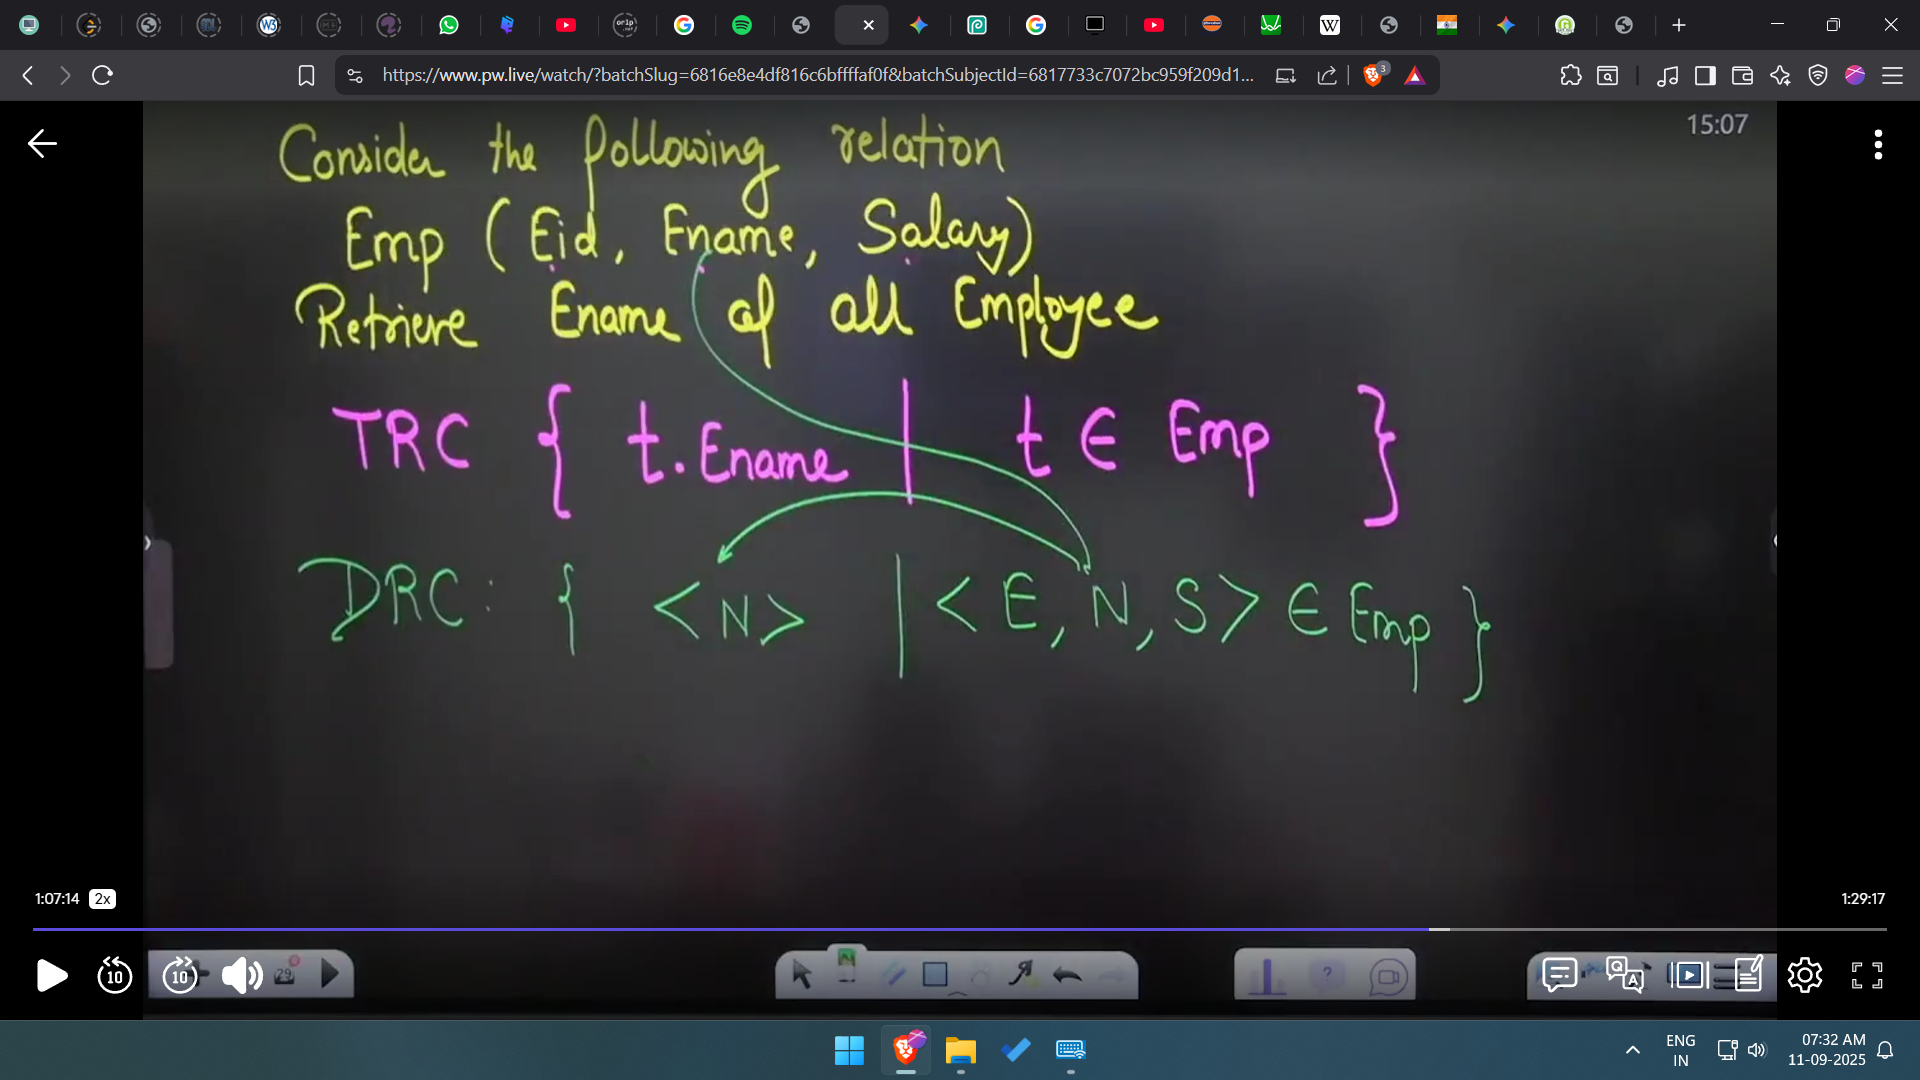 https://www.pw.live/watch/?batchSlug=6816e8e4df816c6bffffaf0f&batchSubjectId=6817733c7072bc959f209d1...
3
15:07
Consider the following relation
Emp ( Eid, Ename, Salary)
Retrieve Ename of all Employee
TRC { t.Ename | t ∈ Emp }
DRC: { <N> | <E, N, S> ∈ Emp }
1:07:14 2x
1:29:17
10 10 29
ENG
IN
07:32 AM
11-09-2025